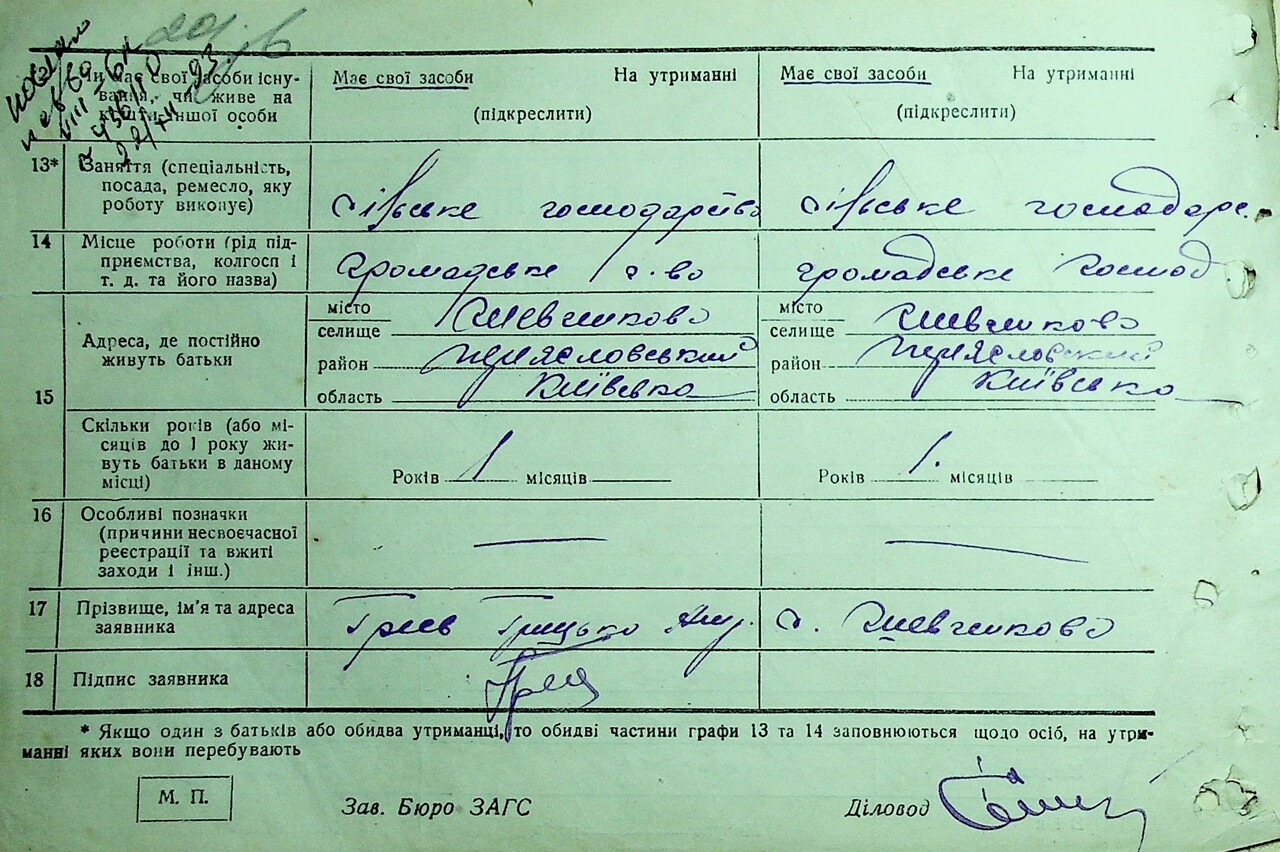 Чи має свої засоби існу-
вання, чи живе на
кошти іншої особи
Має свої засоби На утриманні
(підкреслити)
Має свої засоби На утриманні
(підкреслити)
13* Заняття (спеціальність,
посада, ремесло, яку
роботу виконує)
сільське господарство
сільське господарс.
14 Місце роботи (рід під-
приємства, колгосп і
т. д. та його назва)
громадське г-во
громадське господ
15 Адреса, де постійно
живуть батьки
місто
селище Шевченково
район
область Київська
місто
селище Шевченково
район
область Київська
Скільки років (або мі-
сяців до 1 року жи-
вуть батьки в даному
місці)
Років 1 місяців
Років 1. місяців
16 Особливі позначки
(причини несвоєчасної
реєстрації та вжиті
заходи і інш.)
17 Прізвище, ім'я та адреса
заявника
Грицько
с. Шевченково
18 Підпис заявника
* Якщо один з батьків або обидва утриманці, то обидві частини графи 13 та 14 заповнюються щодо осіб, на утри-
манні яких вони перебувають
М. П.
Зав. Бюро ЗАГС
Діловод